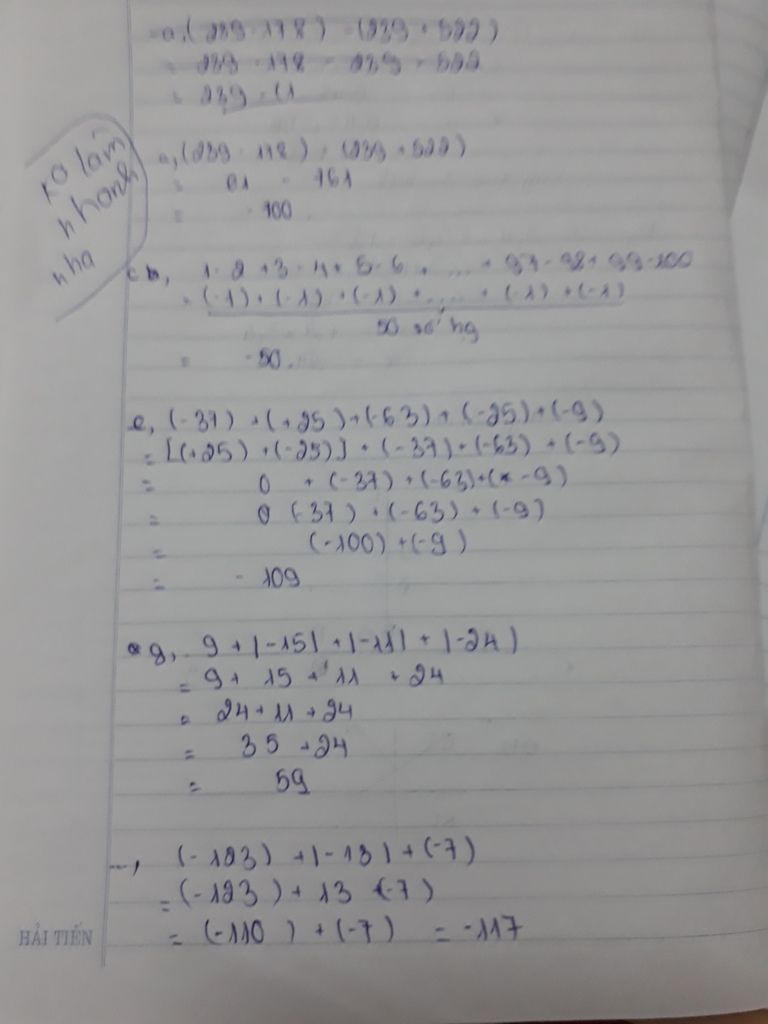 a, (239 - 178) - (239 + 522)
= 239 - 178 - 239 + 522
= 239 - (1
a, (239 - 178) - (239 + 522)
= 61 - 761
= -700
ko làm
nhanh
nha
b, 1 - 2 + 3 - 4 + 5 - 6 + .... + 97 - 98 + 99 - 100
= (-1) + (-1) + (-1) + .... + (-1) + (-1)
50 số hg
= -50.
e, (-37) + (+25) + (-63) + (-25) + (-9)
= [(+25) + (-25)] + (-37) + (-63) + (-9)
= 0 + (-37) + (-63) + (-9)
= 0 (-37) + (-63) + (-9)
= (-100) + (-9)
= - 109
g, 9 + |-15| + |-11| + |-24|
= 9 + 15 + 11 + 24
= 24 + 11 + 24
= 35 + 24
= 59
..., (-123) + |-13| + (-7)
= (-123) + 13 (-7)
= (-110) + (-7) = -117
HẢI TIẾN